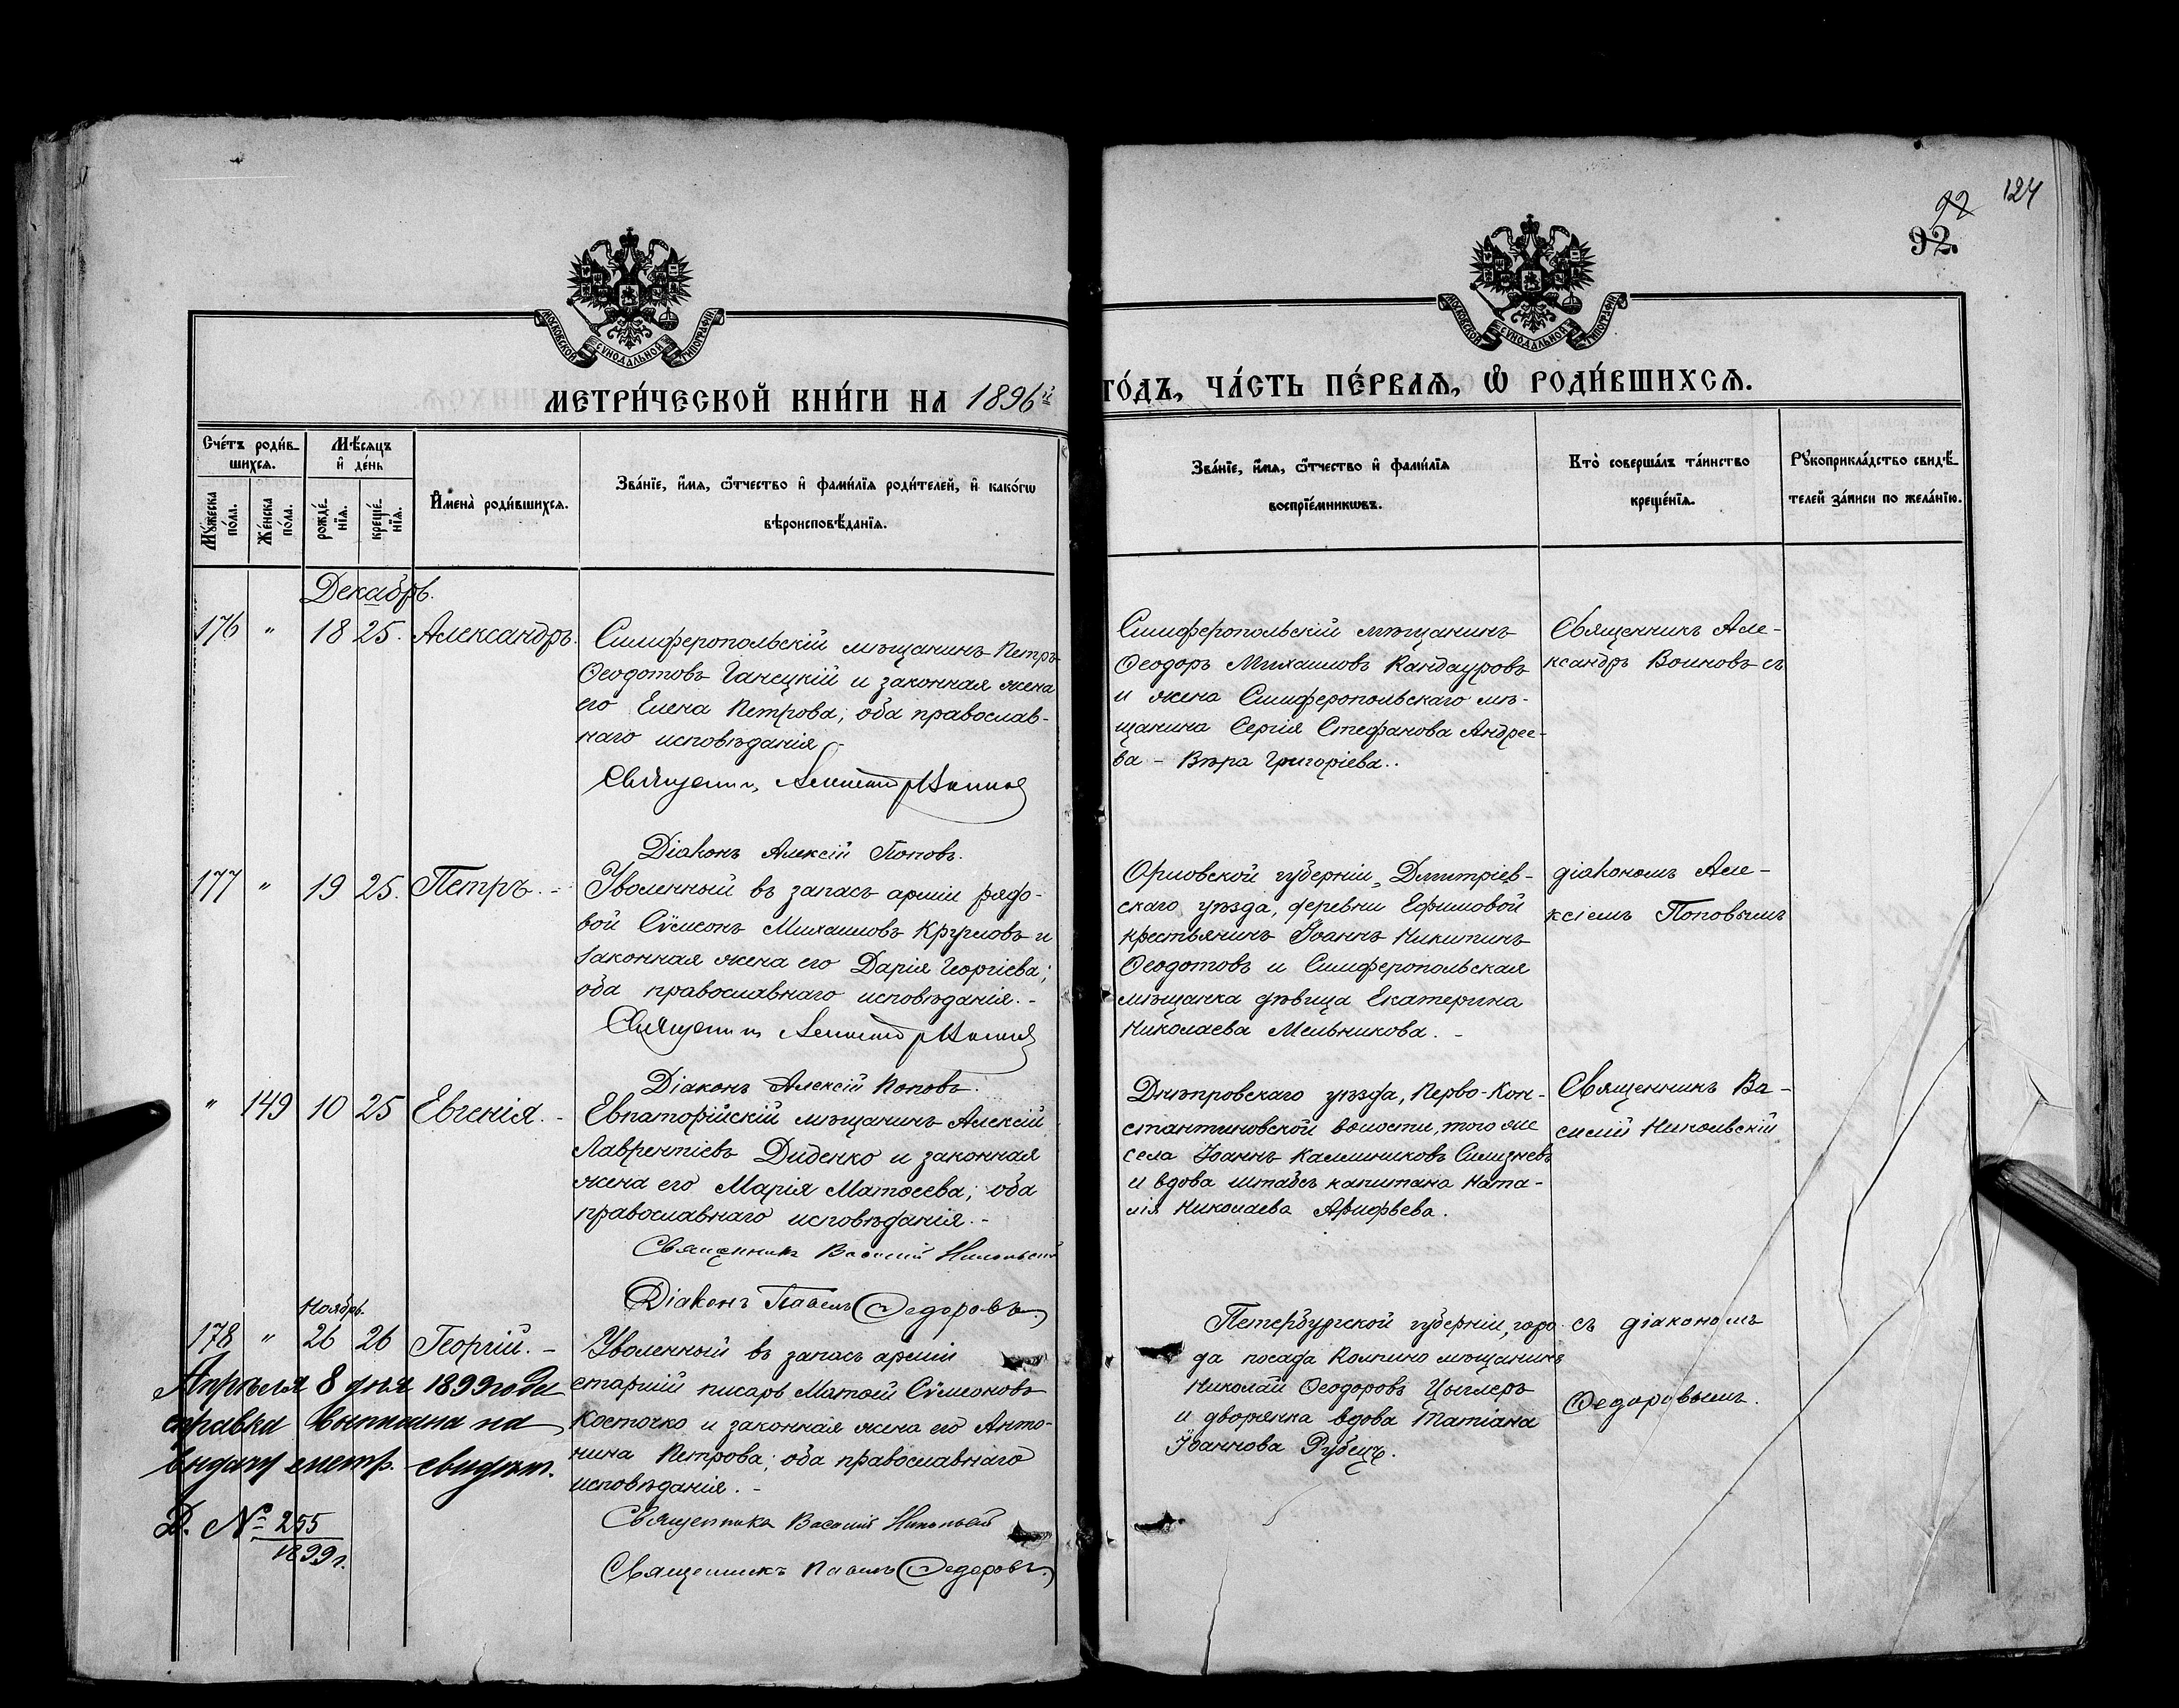 124
92
92.
МОСКОВСКОЙ СѴНОДАЛЬНОЙ ТИПОГРАФІИ
МОСКОВСКОЙ СѴНОДАЛЬНОЙ ТИПОГРАФІИ
МЕТРИ́ЧЕСКОЙ КНИ́ГИ НА 1896й
ГО́ДЪ, ЧА́СТЬ ПЕ́РВАѦ, Ѡ҆ РОДИ́ВШИХСѦ.
Сче́тъ роди́в-
шихсѧ.
Мѣ́сѧцъ
и҆ де́нь
Мꙋ́жеска
по́ла.
Же́нска
по́ла.
рожде́-
нїѧ.
креще́-
нїѧ.
И҆мена̀ роди́вшихсѧ.
Зва́нїе, и҆́мѧ, ѻ҆́тчество и҆ фами́лїѧ роди́телей, и҆ како́гѡ
вѣроисповѣ́данїѧ.
Зва́нїе, и҆́мѧ, ѻ҆́тчество и҆ фами́лїѧ
воспрїе́мникѡвъ.
Кто̀ соверша́лъ та́инство
креще́нїѧ.
Рꙋкоприкла́дство свидѣ́-
телей за́писи по жела́нїю.
Декабрь.
176 " 18 25. Александръ.
Симферопольскій мѣщанинъ Петръ
Ѳеодотовъ Ганецкій и законная жена
его Елена Петрова; оба православ-
наго исповѣданія.
Священникъ Александръ Воиновъ
Діаконъ Алексій Поповъ.
Симферопольскій мѣщанинъ
Ѳеодоръ Михаиловъ Кандауровъ
и жена Симферопольскаго мѣ-
щанина Сергія Стефанова Андрее-
ва - Вѣра Григоріева..
Священникъ Але-
ксандръ Воиновъ съ
177 " 19 25. Петръ. -
Уволенный въ запасъ арміи рядо-
вой Сѵмеонъ Михаиловъ Кругловъ и
законная жена его Дарія Георгіева;
оба православнаго исповѣданія. -
Священникъ Александръ Воиновъ
Діаконъ Алексій Поповъ.
Орловской губерніи, Дмитріев-
скаго уѣзда, деревни Ефимовой
крестьянинъ Іоаннъ Никитинъ
Ѳеодотовъ и Симферопольская
мѣщанка дѣвица Екатерина
Николаева Мельникова. -
діакономъ Але-
ксіемъ Поповымъ
" 149 10 25 Евгенія. -
Евпаторійскій мѣщанинъ Алексій
Лаврентіевъ Диденко и законная
жена его Марія Матѳеева; оба
православнаго исповѣданія. -
Священникъ Василій Никольскій
Діаконъ Павелъ Ѳедоровъ.
Днѣпровскаго уѣзда, Перво-Кон-
стантиновской волости, того же
села Іоаннъ Каллиниковъ
и вдова штабсъ капитана Ната-
лія Николаева
Священникъ Ва-
силій Никольскій
Ноябрь.
178 " 26 26 Георгій. -
Уволенный въ запасъ арміи
старшій писарь Матѳей Сѵмеоновъ
Косточко и законная жена его Анто-
нина Петрова; оба православнаго
исповѣданія. -
Священникъ Василій Никольскій
Священникъ Павелъ Ѳедоровъ.
Петербургской губерніи, горо-
да посада Колпино мѣщанинъ
Николай Ѳеодоровъ Цыглеръ
и дворянка вдова Татіана
Іоаннова Рубецъ.
съ діакономъ
Ѳедоровымъ.
Апрѣля 8 дня 1899 года
справка выписана на
выдачу метр. свидѣт.
Д. № 255
1899 г.